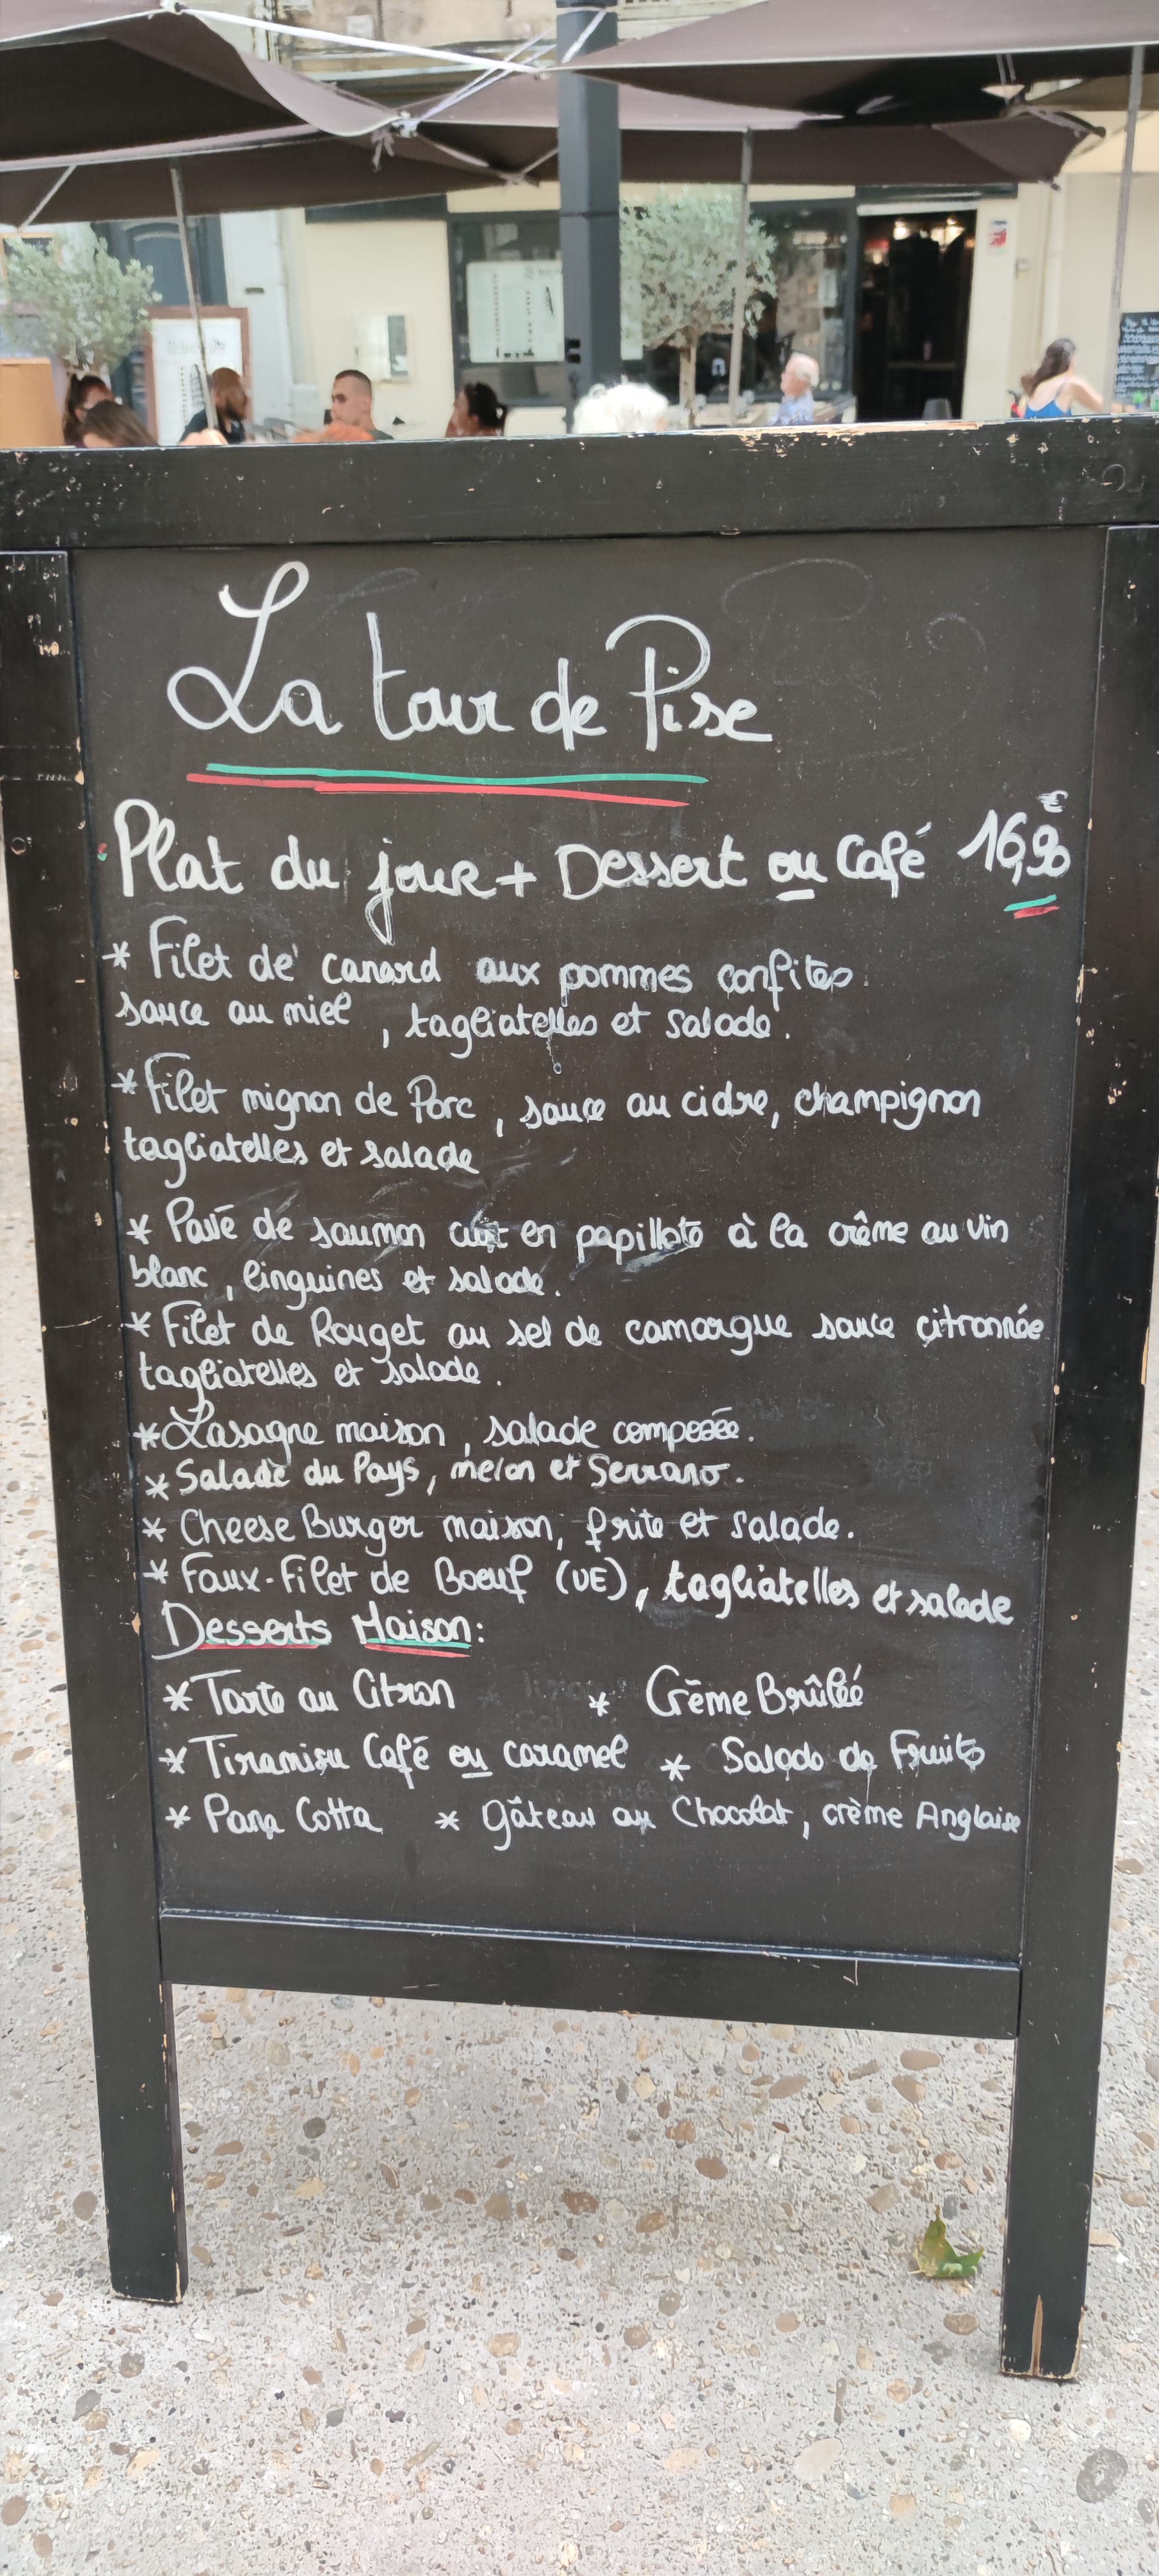 La tour de Pise
Plat du jour + Dessert ou Café 16,90 €
* Filet de canard aux pommes confites
sauce au miel, tagliatelles et salade.
* Filet mignon de Porc, sauce au cidre, champignon
tagliatelles et salade
* Pavé de saumon cuit en papillote à la crème au vin
blanc, linguines et salade.
* Filet de Rouget au sel de camargue sauce citronnée
tagliatelles et salade.
* Lasagne maison, salade composée.
* Salade du Pays, melon et Serrano.
* Cheese Burger maison, frite et salade.
* Faux-Filet de Boeuf (UE), tagliatelles et salade
Desserts Maison:
* Tarte au Citron * Crème Brûlée
* Tiramisu Café ou caramel * Salade de Fruits
* Pana Cotta * gâteau au Chocolat, crème Anglaise